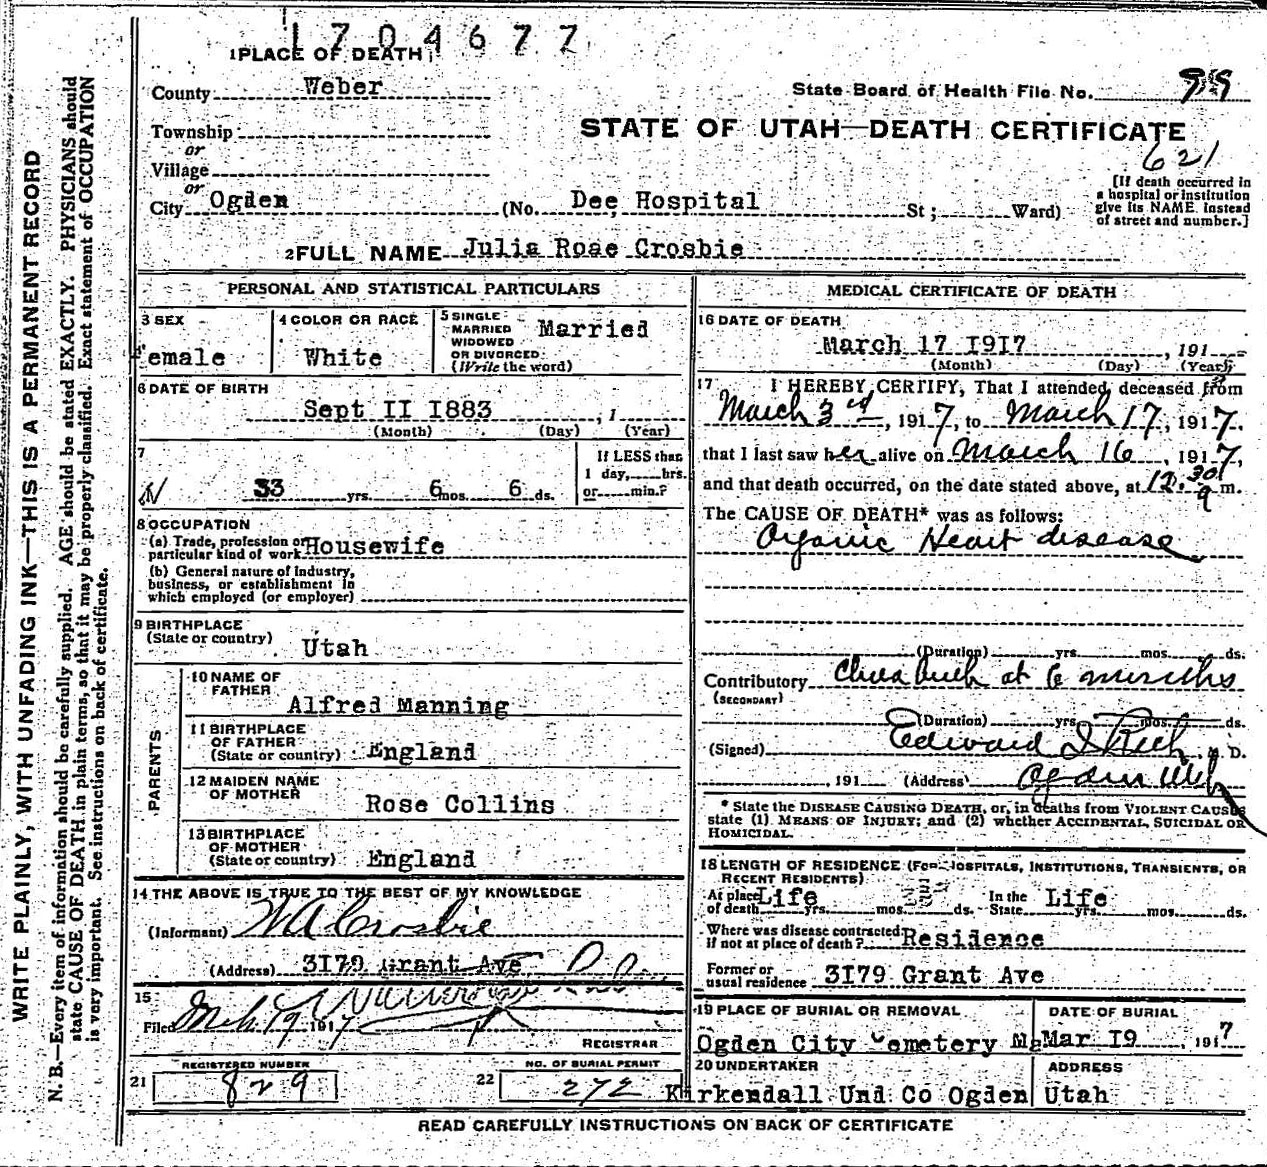 1704677
1 PLACE OF DEATH
County Weber
State Board of Health File No. 99
Township
STATE OF UTAH—DEATH CERTIFICATE
or
621
Village
or
City Ogden (No. Dee Hospital St; Ward)
[If death occurred in
a hospital or institution
give its NAME instead
of street and number.]
2 FULL NAME Julia Rose Crosbie
PERSONAL AND STATISTICAL PARTICULARS
3 SEX
Female
4 COLOR OR RACE
White
5 SINGLE
MARRIED
WIDOWED
OR DIVORCED
(Write the word)
Married
6 DATE OF BIRTH
Sept II I883 , 1
(Month) (Day) (Year)
7
33 yrs. 6 mos. 6 ds.
If LESS than
1 day, hrs.
or min.?
8 OCCUPATION
(a) Trade, profession or
particular kind of work Housewife
(b) General nature of Industry,
business, or establishment in
which employed (or employer)
9 BIRTHPLACE
(State or country) Utah
PARENTS
10 NAME OF
FATHER
Alfred Manning
11 BIRTHPLACE
OF FATHER
(State or country) England
12 MAIDEN NAME
OF MOTHER
Rose Collins
13 BIRTHPLACE
OF MOTHER
(State or country) England
14 THE ABOVE IS TRUE TO THE BEST OF MY KNOWLEDGE
(Informant) W A Crosbie
(Address) 3I79 Grant Ave
15
Filed Mch. 19 1917
REGISTRAR
REGISTERED NUMBER
21 829
NO. OF BURIAL PERMIT
22 272
MEDICAL CERTIFICATE OF DEATH
16 DATE OF DEATH
March 17 I9I7 , 191
(Month) (Day) (Year)
17 I HEREBY CERTIFY, That I attended deceased from
March 3rd, 1917, to March 17, 1917,
that I last saw her alive on March 16, 1917,
and that death occurred, on the date stated above, at 12.30 a m.
The CAUSE OF DEATH* was as follows:
Organic Heart disease
(Duration) yrs. mos. ds.
Contributory at 6 months
(SECONDARY)
(Duration) yrs. mos. ds.
(Signed) Edward I Rich M. D.
, 191 (Address) Ogden Utah
* State the DISEASE CAUSING DEATH, or, in deaths from VIOLENT CAUSES
state (1) MEANS OF INJURY; and (2) whether ACCIDENTAL, SUICIDAL OR
HOMICIDAL.
18 LENGTH OF RESIDENCE (FOR HOSPITALS, INSTITUTIONS, TRANSIENTS, OR
RECENT RESIDENTS)
At place
of death Life yrs. mos. ds. In the
State Life yrs. mos. ds.
Where was disease contracted
if not at place of death? Residence
Former or
usual residence 3I79 Grant Ave
19 PLACE OF BURIAL OR REMOVAL
Ogden City Cemetery
DATE OF BURIAL
Mar I9 , 1917
20 UNDERTAKER
Kirkendall Und Co Ogden
ADDRESS
Utah
READ CAREFULLY INSTRUCTIONS ON BACK OF CERTIFICATE
WRITE PLAINLY, WITH UNFADING INK—THIS IS A PERMANENT RECORD
N. B.—Every item of information should be carefully supplied. AGE should be stated EXACTLY. PHYSICIANS should
state CAUSE OF DEATH in plain terms, so that it may be properly classified. Exact statement of OCCUPATION
is very important. See instructions on back of certificate.